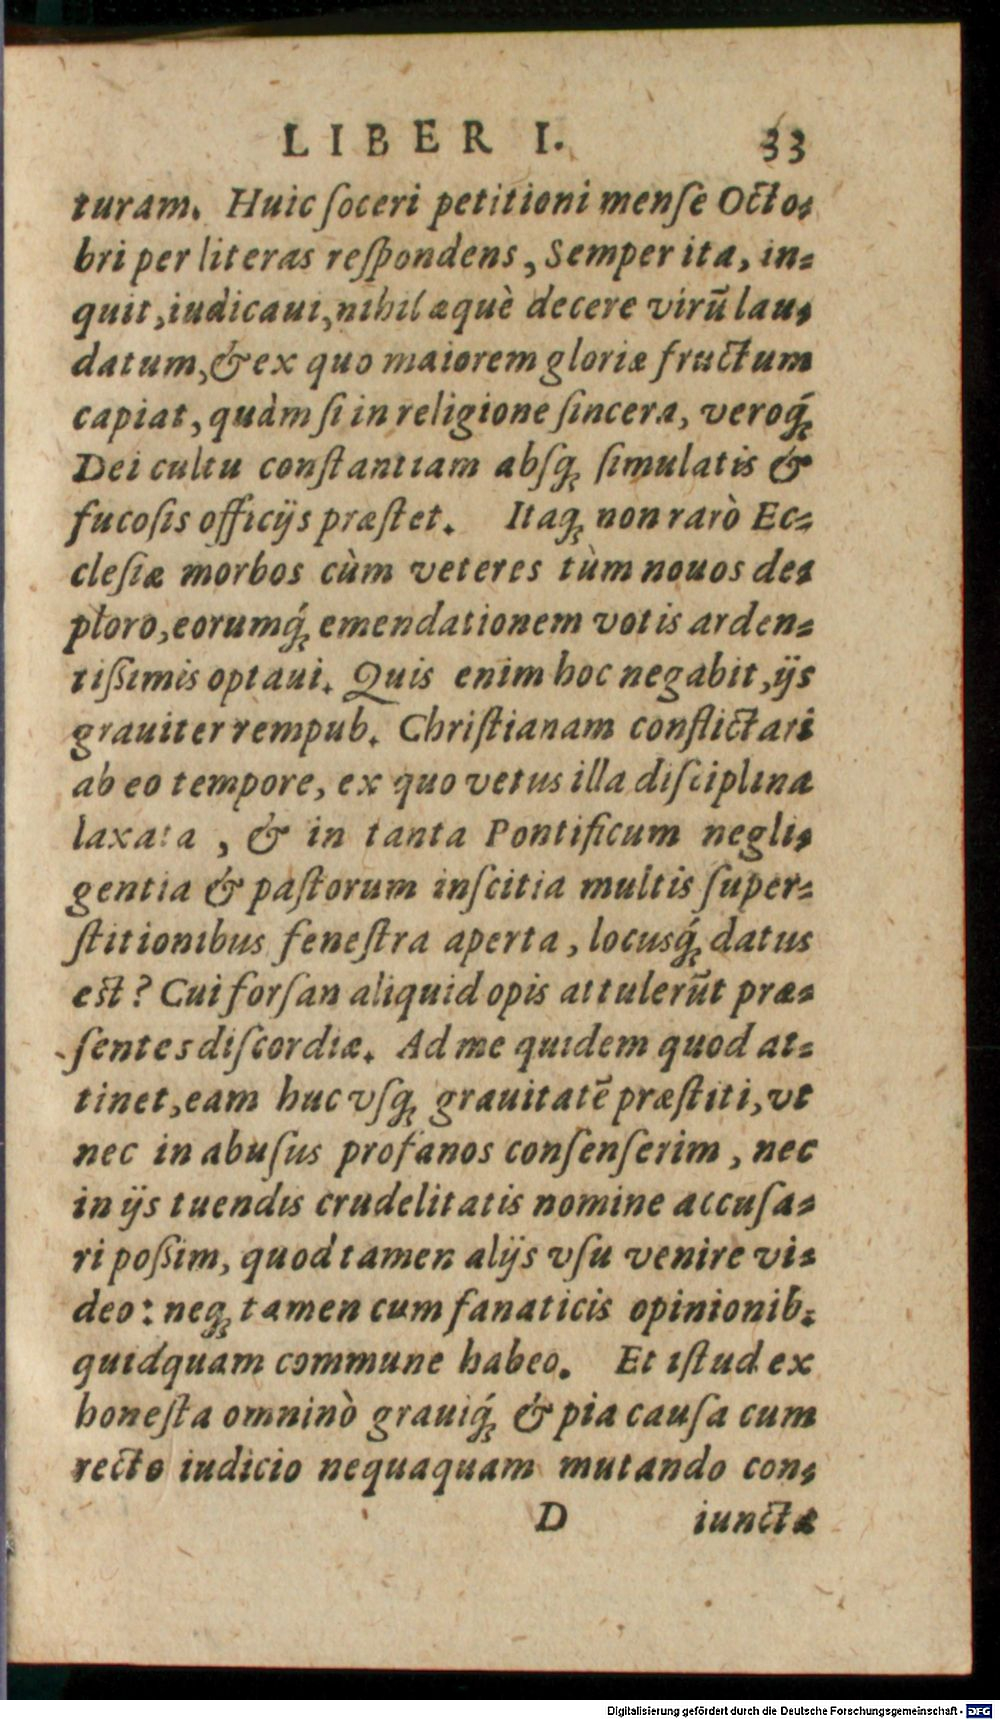 LIBER I. 33
turam. Huic ſoceri petitioni menſe Octo-
bri per literas reſpondens, Semper ita, in-
quit, iudicaui, nihil æquè decere virũ lau-
datum, & ex quo maiorem gloriæ fructum
capiat, quàm ſi in religione ſincera, veroq́;
Dei cultu conſtantiam abſq; ſimulatis &
fucoſis officijs præſtet. Itaq; non rarò Ec-
cleſiæ morbos cùm veteres tùm nouos de-
ploro, eorumq́; emendationem votis arden-
tißimis optaui. Quis enim hoc negabit, ijs
grauiter rempub. Chriſtianam conflictari
ab eo tempore, ex quo vetus illa diſciplina
laxata, & in tanta Pontificum negli-
gentia & paſtorum inſcitia multis ſuper-
ſtitionibus feneſtra aperta, locusq́; datus
eſt? Cui forſan aliquid opis attulerũt præ-
ſentes diſcordiæ. Ad me quidem quod at-
tinet, eam huc vſq; grauitatẽ præſtiti, vt
nec in abuſus profanos conſenſerim, nec
in ijs tuendis crudelitatis nomine accuſa-
ri poßim, quod tamen alijs vſu venire vi-
deo: neq; tamen cum fanaticis opinionib.
quidquam commune habeo. Et iſtud ex
honeſta omninò grauiq́; & pia cauſa cum
recto iudicio nequaquam mutando con-
D iunctæ
Digitalisierung gefördert durch die Deutsche Forschungsgemeinschaft - DFG